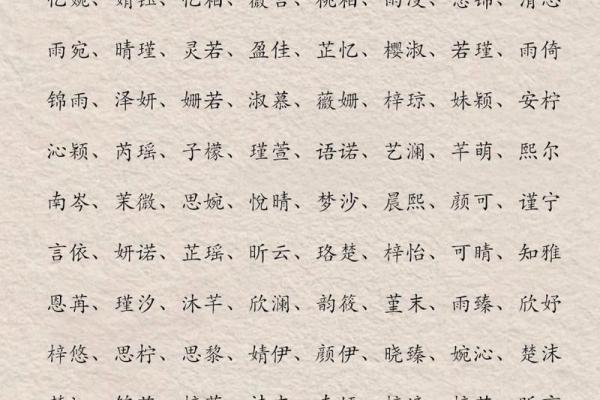 雨宛、晴瑾、灵若、盈佳、芷忆、樱淑、若瑾、雨倚
锦雨、泽妍、姗若、淑慕、薇姗、梓琼、妹颖、安柠
沁颖、芮瑶、子檬、瑾萱、语诺、艺澜、芊萌、熙尔
南岑、茉微、思婉、悅晴、梦沙、晨熙、颜可、谨宁
言依、妍诺、芷瑶、昕云、珞楚、梓怡、可晴、知雅
恩苒、瑾汐、沐芊、欣澜、韵筱、堇末、雨臻、欣妤
梓悠、思柠、思黎、婧伊、颜伊、晓臻、婉沁、楚沫